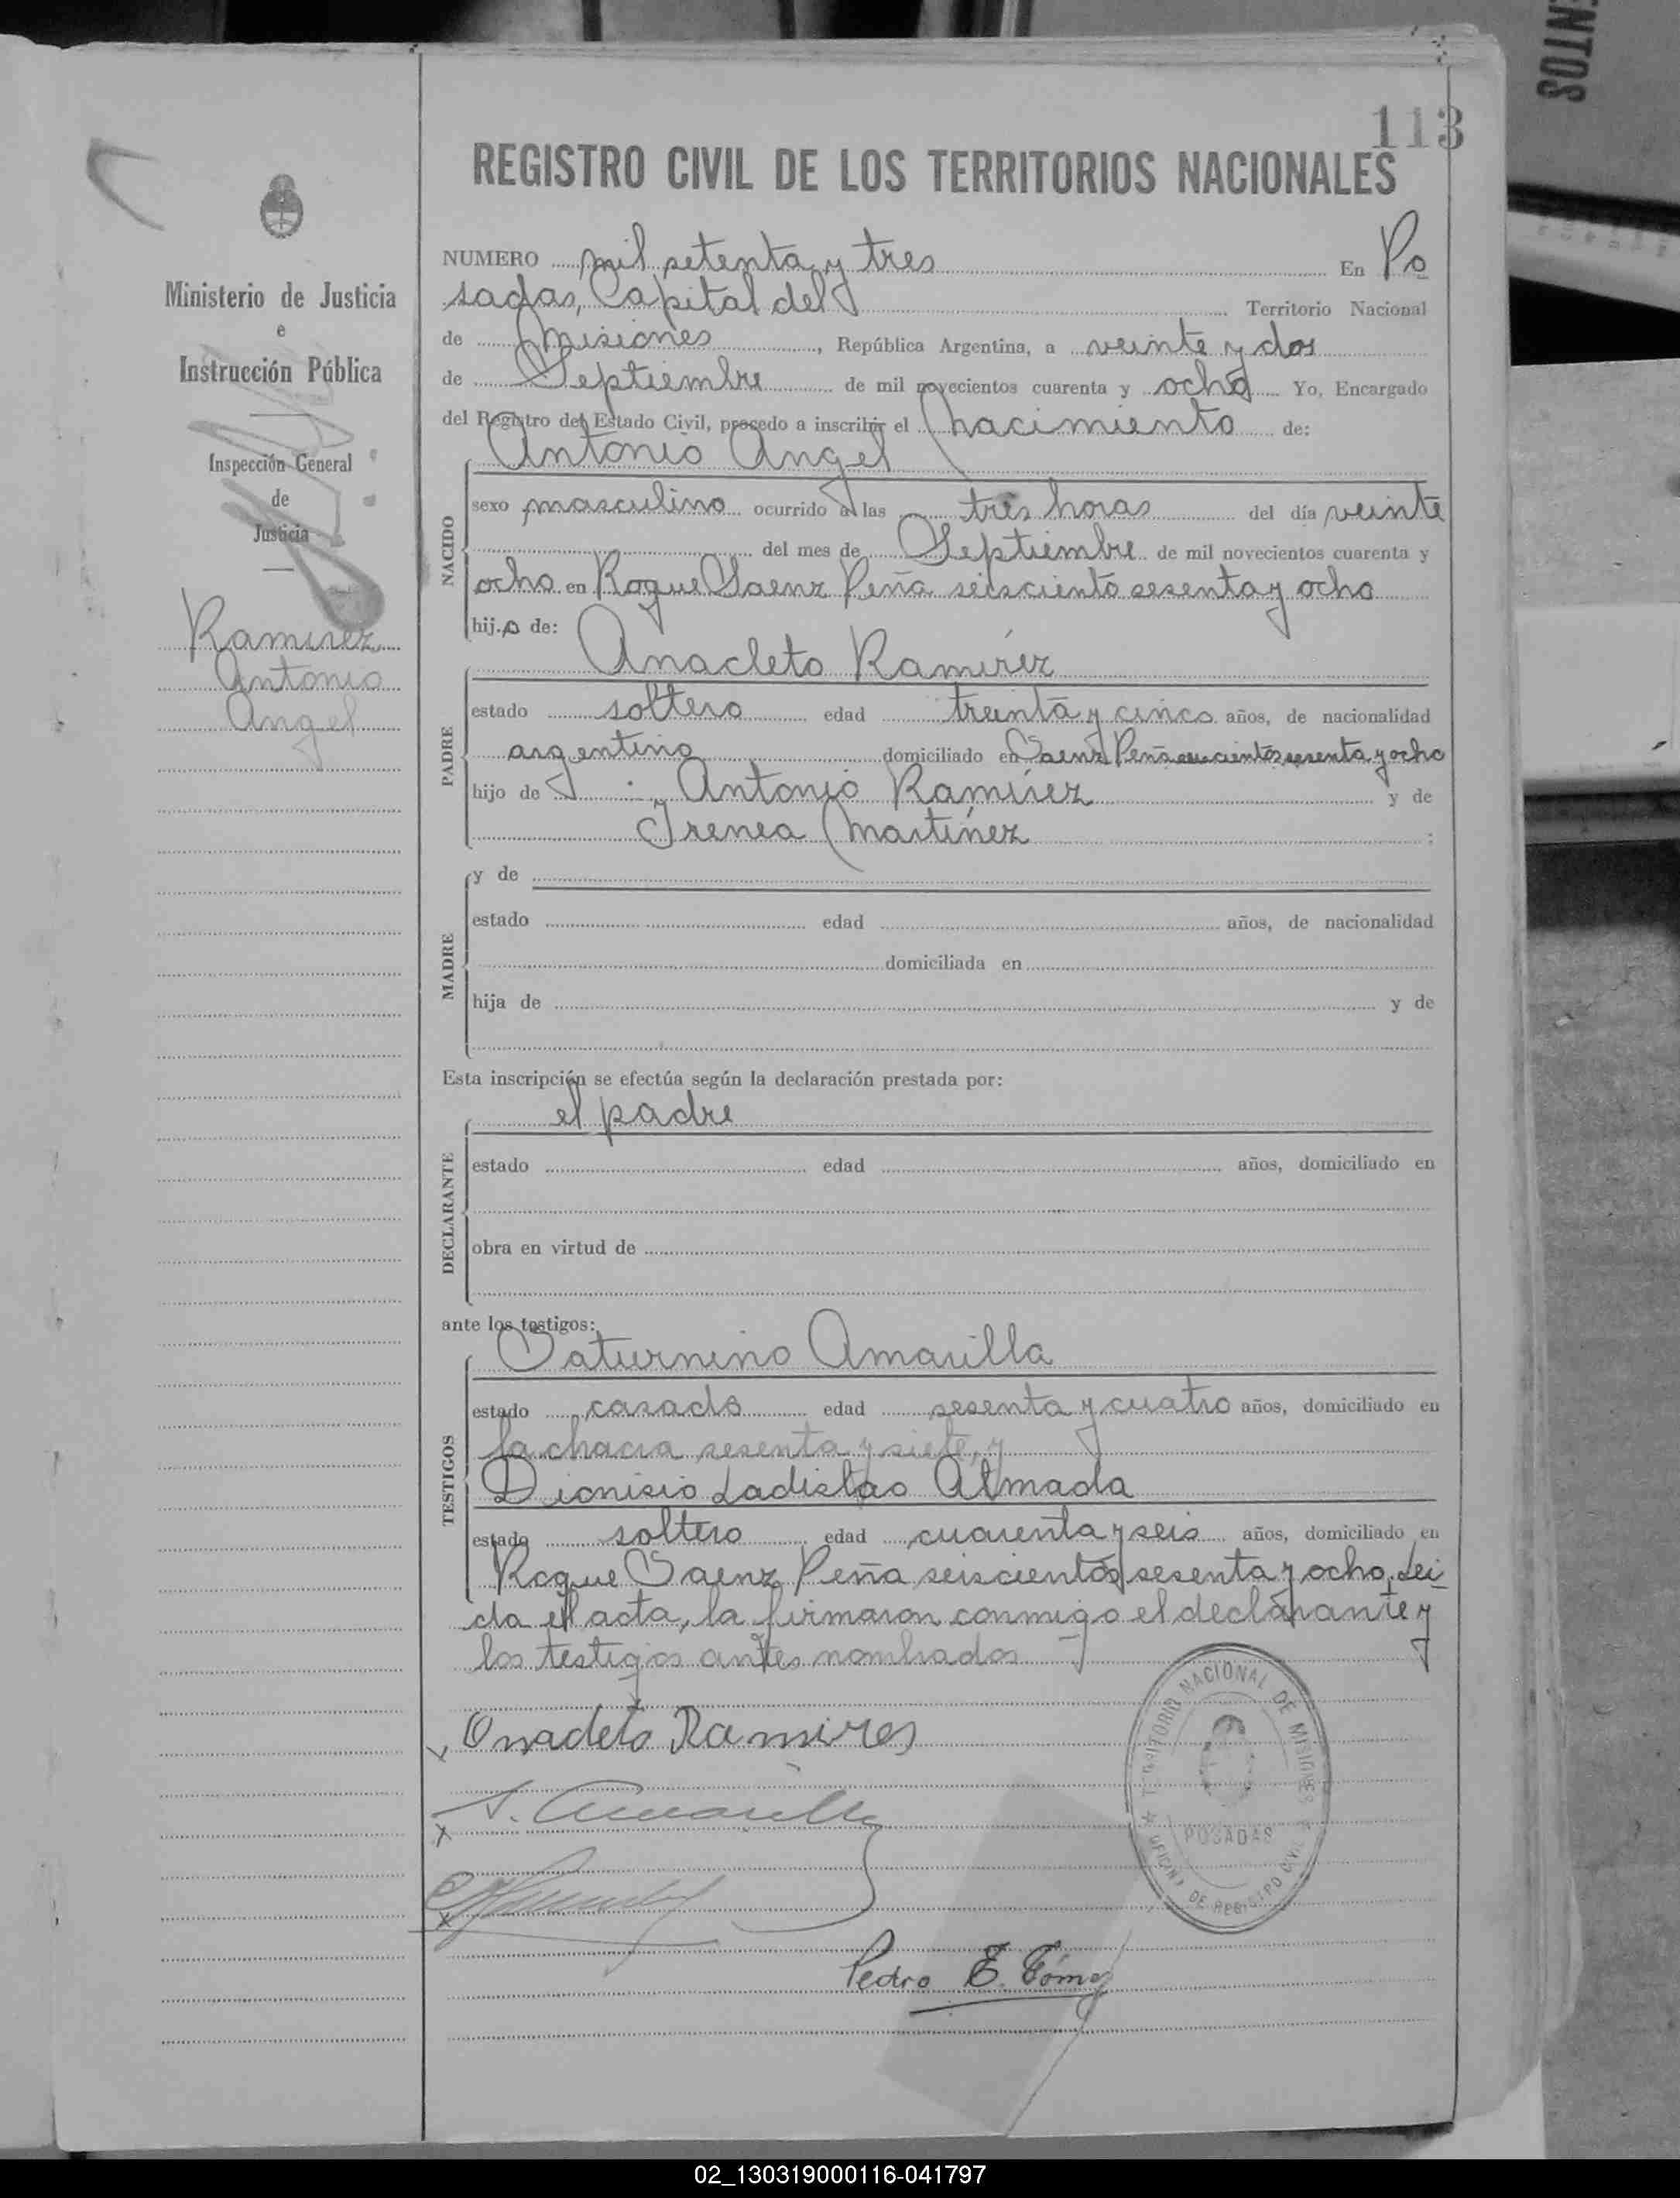 ENTOS
113
REGISTRO CIVIL DE LOS TERRITORIOS NACIONALES
Ministerio de Justicia
e
Instrucción Pública
Inspección General
de
Justicia
Ramirez
Antonio
Angel
NUMERO mil setenta y tres En Po
sadas, Capital del Territorio Nacional
de Misiones, República Argentina, a veinte y dos
de Septiembre de mil novecientos cuarenta y ocho Yo, Encargado
del Registro del Estado Civil, procedo a inscribir el nacimiento de:
Antonio Angel
NACIDO
sexo masculino ocurrido a las tres horas del día veinte
del mes de Septiembre de mil novecientos cuarenta y
ocho en Roque Saenz Peña seisciento sesenta y ocho
hijo de:
Anacleto Ramírez
PADRE
estado soltero edad treinta y cinco años, de nacionalidad
argentino domiciliado en Saenz Peña seiscientos sesenta y ocho
hijo de Antonio Ramírez y de
Irenea Martínez ;
MADRE
y de
estado edad años, de nacionalidad
domiciliada en
hija de y de
Esta inscripción se efectúa según la declaración prestada por:
el padre
DECLARANTE
estado edad años, domiciliado en
obra en virtud de
ante los testigos:
Saturnino Amarilla
TESTIGOS
estado casado edad sesenta y cuatro años, domiciliado en
la chacra sesenta y siete, y
Dionisio Ladislao Almada
estado soltero edad cuarenta y seis años, domiciliado en
Roque Saenz Peña seiscientos sesenta y ocho, Lei
da el acta, la firmaron conmigo el declarante y
los testigos antes nombrados
x Anacleto Ramires
x S. Amarilla
x
TERRITORIO NACIONAL DE MISIONES
POSADAS
OFICINA DE REGISTRO CIVIL
Pedro E. Gómez
02_130319000116-041797